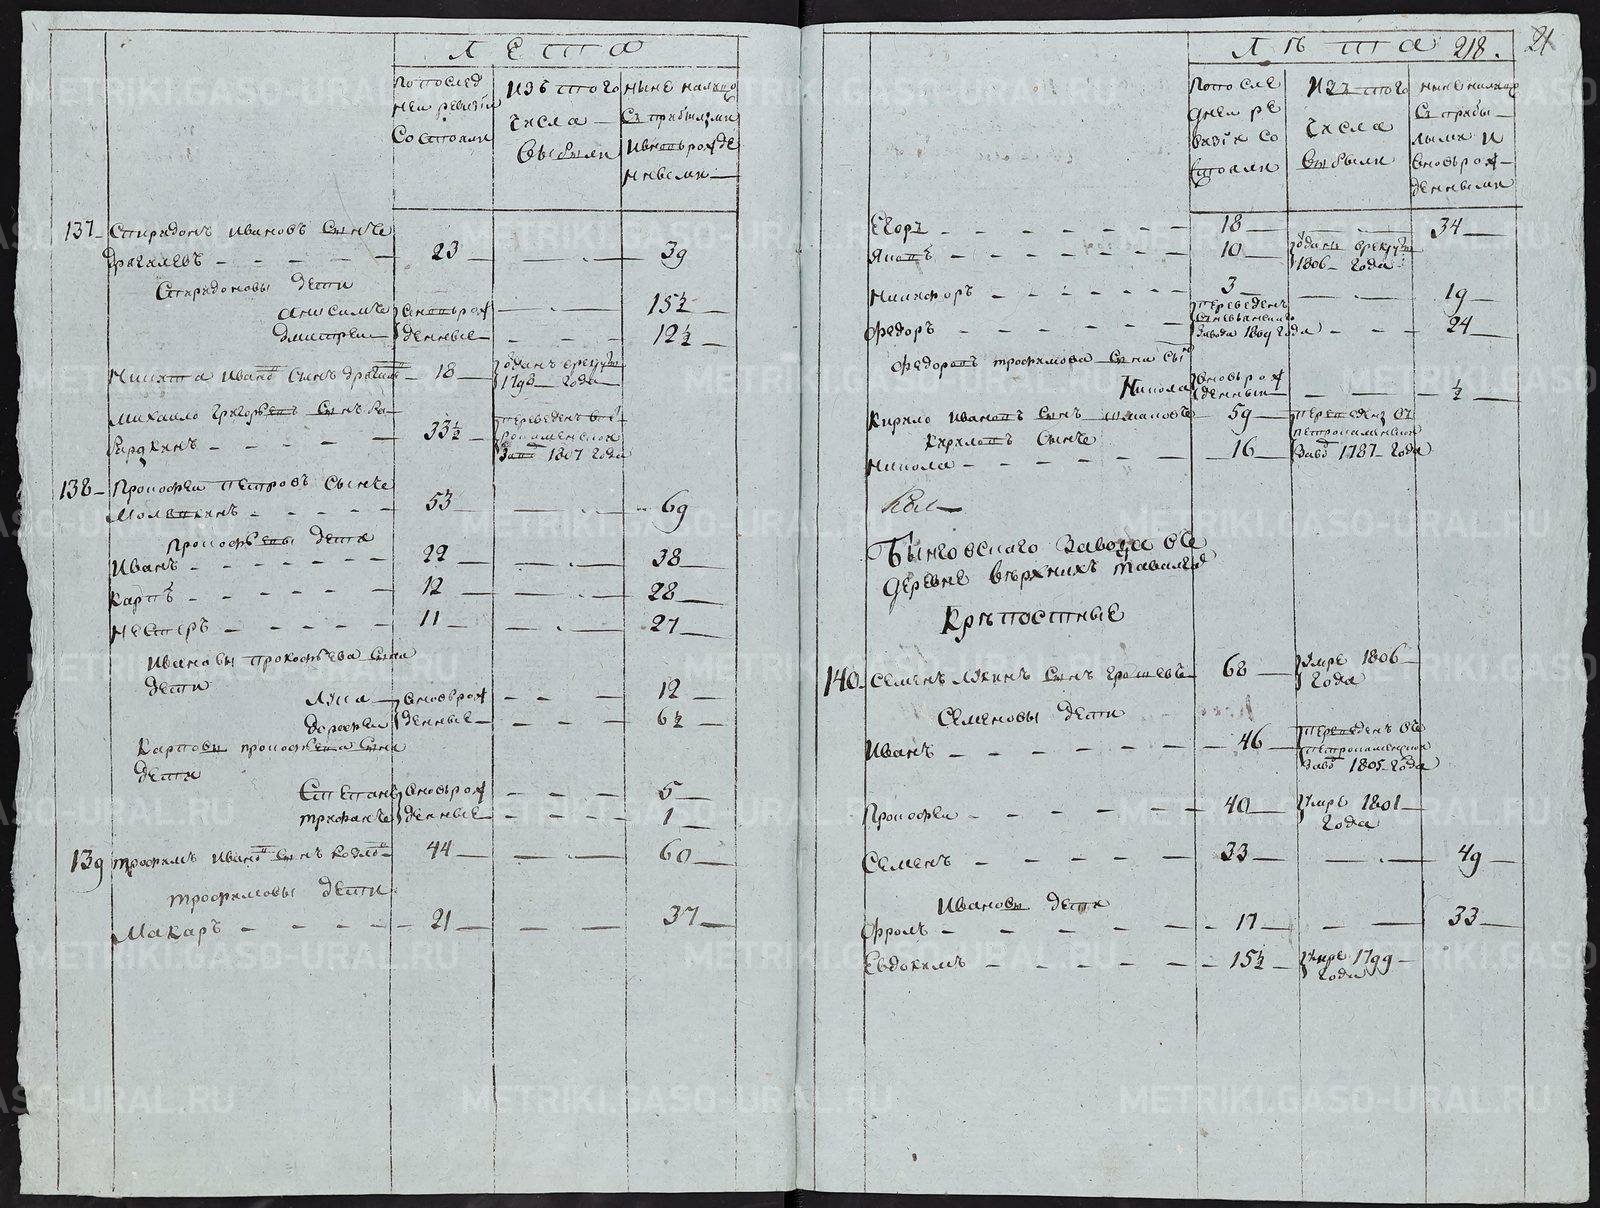 ЛЕТА
По послед
ней ревизiи
Состояли
Изъ того
числа
выбыли
Ныне налицо
Съ прибылми
И вновь рожде
нными
137 Спиридонъ Ивановъ Сынъ
23 39
Спиридоновы дети
Анисимъ вновь рож 15½
Дмитреи денные 12½
Никита Иванов Сынъ 18 отданъ в рекруты
1798 года
Михаило Григорьевъ Сынъ Ка
33½ переведенъ в Пет
ропавленской
Завод 1807 года
138 Прокофеи Петровъ Сынъ
53 69
Прокофьевы дети
Иванъ 22 38
Карпъ 12 28
Нестеръ 11 27
Ивановы Прокофьева Сына
дети
Лука вновь рож 12
Дорофеи денные 6½
Карповы Прокофьева Сына
дети
Степанъ вновь рож 5
Трифанъ денные 1
139 Трофимъ Иванов Сынъ 44 60
Трофимовы дети
Макаръ 21 37
ЛѢТА 218. 21
По после
днеи ре
визiи со
стояли
Изъ того
числа
выбыли
Ныне налицо
Съ прибы
лыми и
вновь рож
денными
Егоръ 18 34
Яковъ 10 отданъ в рекруты
1806 года
Никифоръ 3 19
Федоръ переведенъ
Завода 1809 года 24
Федоровъ Трофимова Сына Сынъ
Никола вновь рож
денный ½
Кирило Ивановъ Сынъ 59 переведенъ въ
Петрокаменской
Завод 1787 года
Кириловъ Сынъ
Никола 16
Быньговскаго Завода въ
деревне верхнихъ таволгах
Крѣпостные
140 Семенъ Лукинъ Сынъ 68 умре 1806
года
Семеновы дети
Иванъ 46 переведенъ въ
Петрокаменской
Завод 1805 года
Прокофеи 40 умре 1801
года
Семенъ 33 49
Ивановы дети
Фролъ 17 33
Евдокимъ 15½ умре 1799
года
METRIKI.GASO-URAL.RU